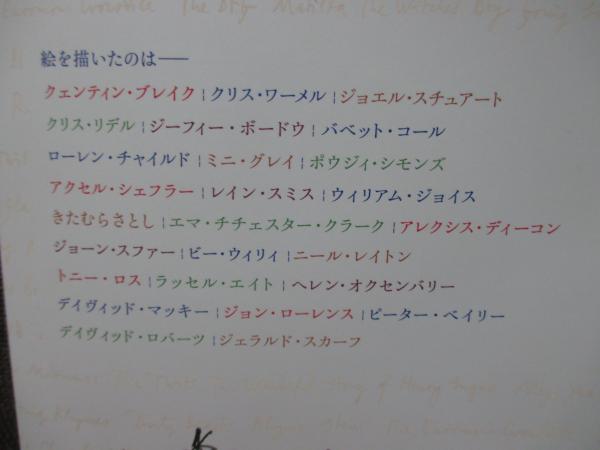 Crocodile The BFG Matilda The Witches Boy Going So
絵を描いたのは——
クェンティン・ブレイク | クリス・ワーメル | ジョエル・スチュアート
クリス・リデル | ジーフィー・ボードウ | バベット・コール
ローレン・チャイルド | ミニ・グレイ | ポウジィ・シモンズ
アクセル・シェフラー | レイン・スミス | ウィリアム・ジョイス
きたむらさとし | エマ・チチェスター・クラーク | アレクシス・ディーコン
ジョーン・スファー | ビー・ウィリィ | ニール・レイトン
トニー・ロス | ラッセル・エイト | ヘレン・オクセンバリー
デイヴィッド・マッキー | ジョン・ローレンス | ピーター・ベイリー
デイヴィッド・ロバーツ | ジェラルド・スカーフ
The Twits The Wonderful Story of Henry Sugar
Rhymes Dirty Beasts Rhyme Stew The Enormous Crocodile